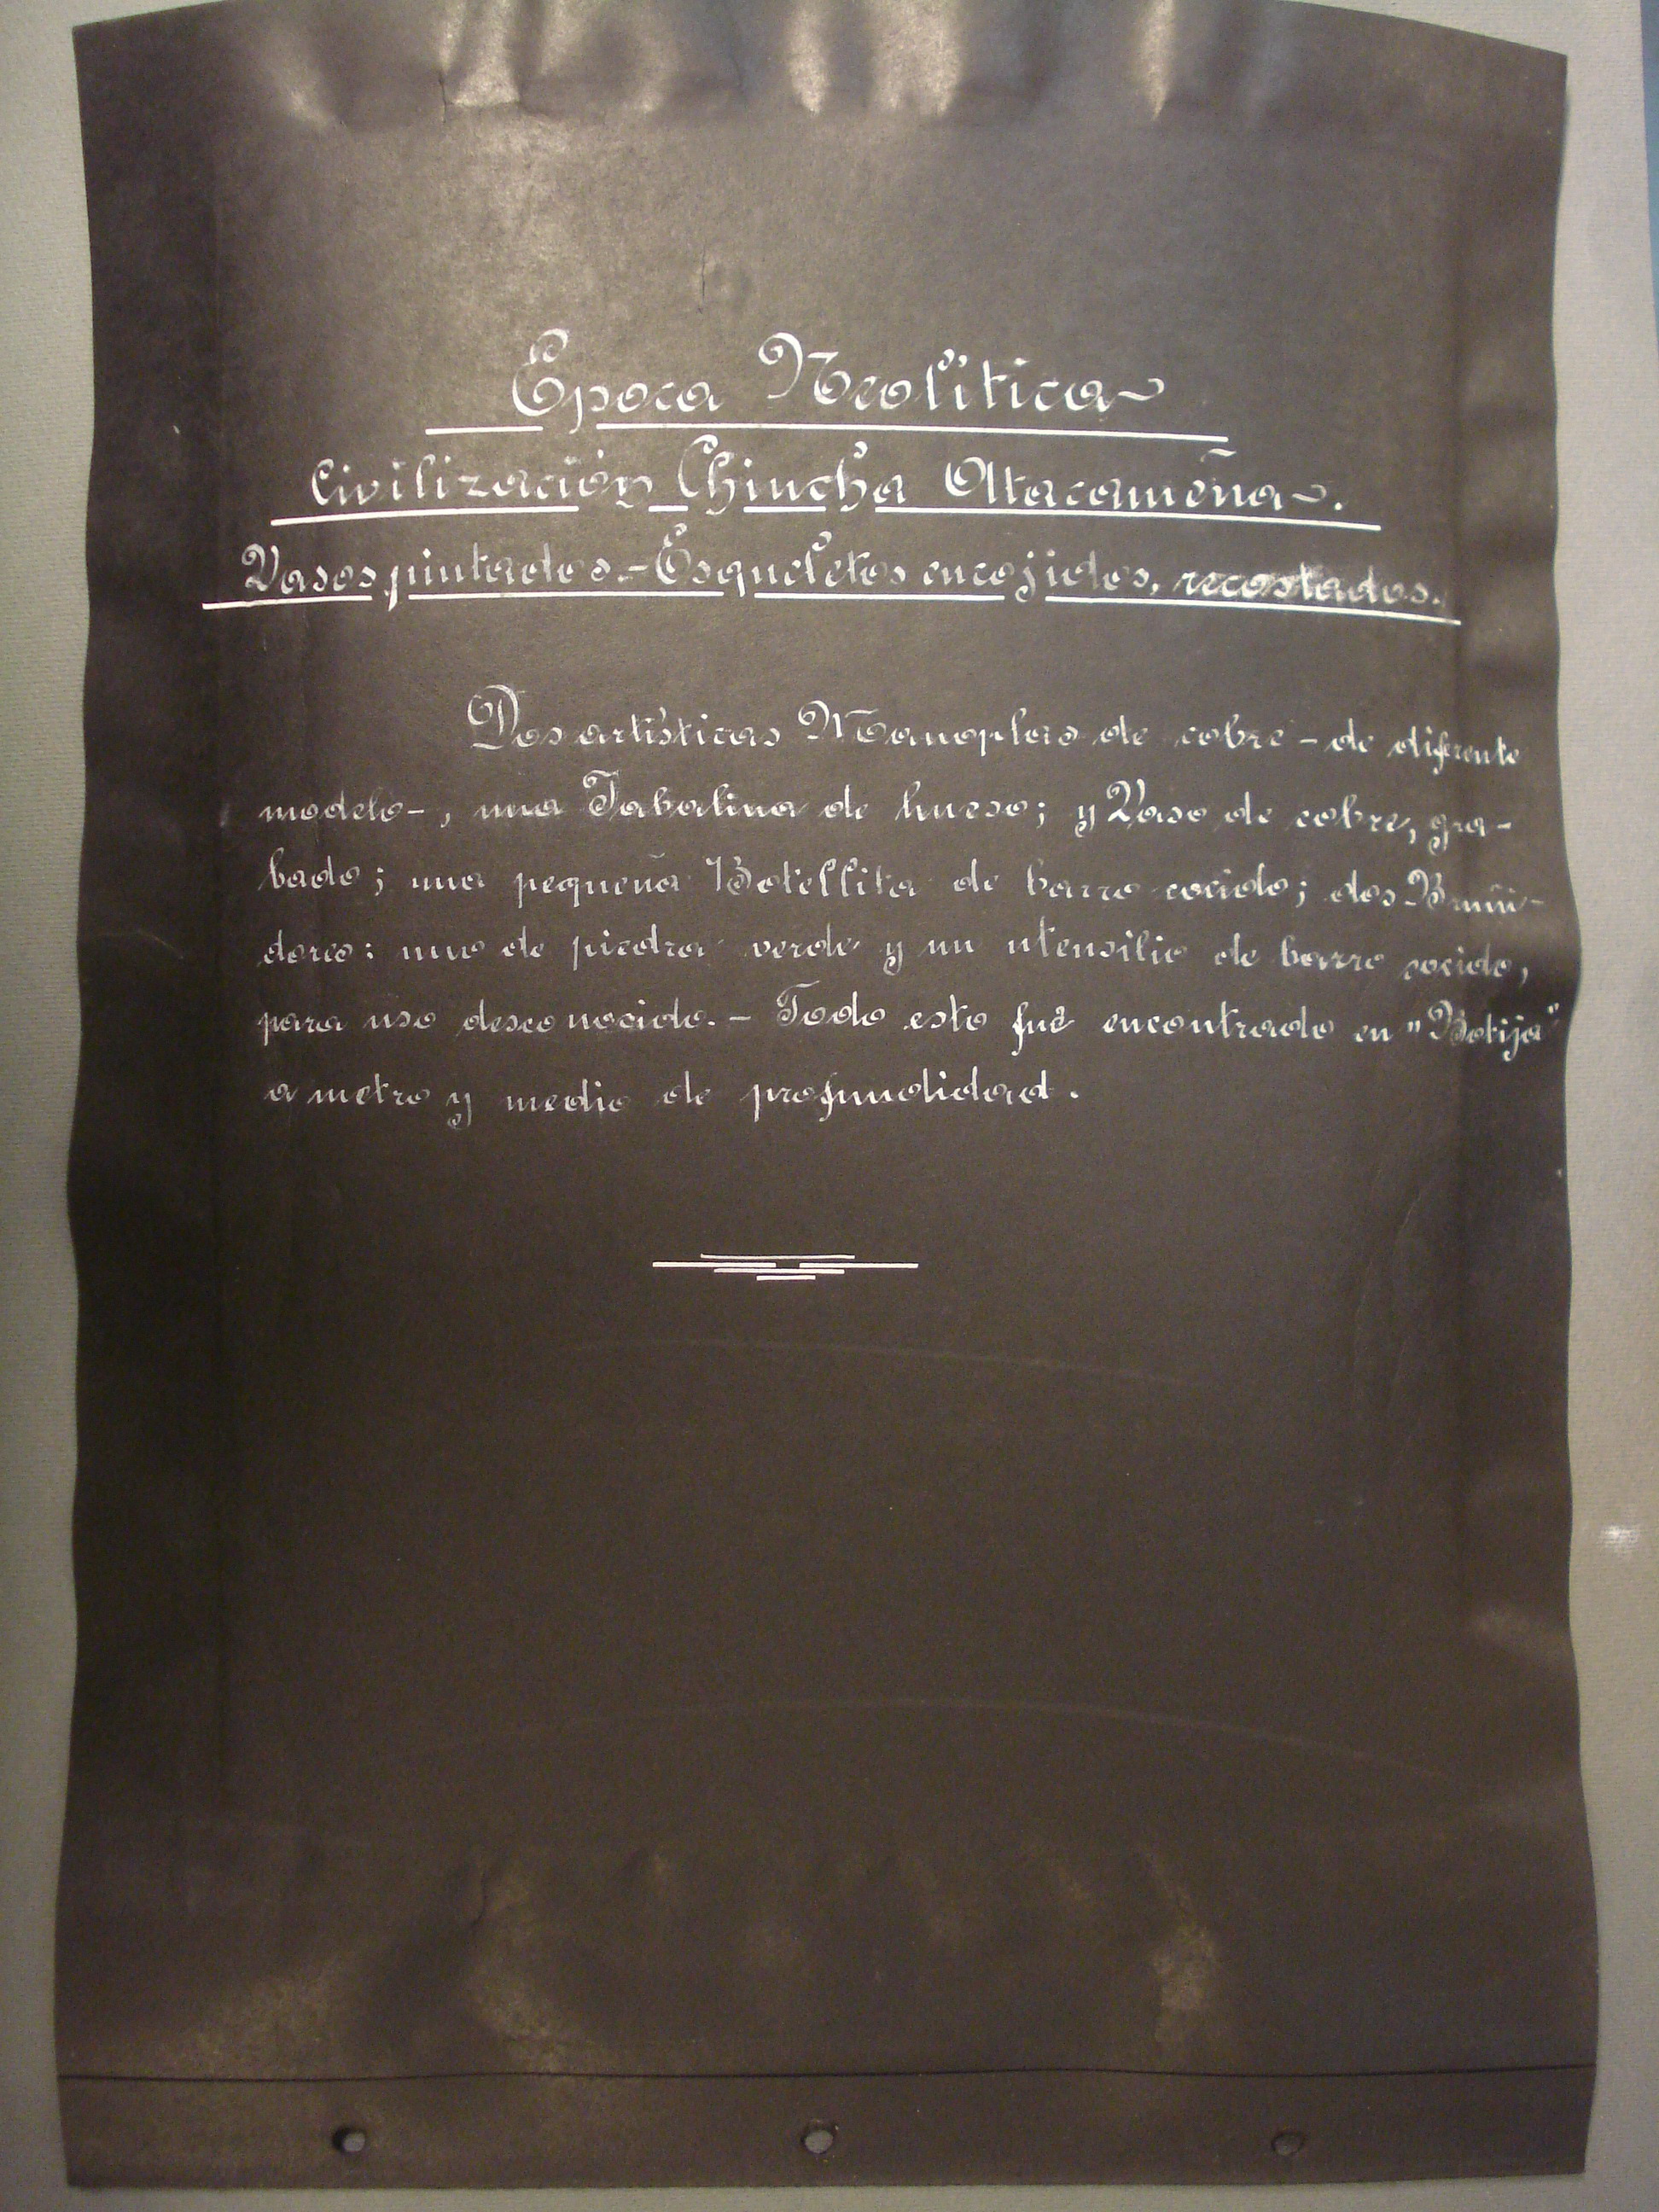 Epoca Neolitica
Civilización Chincha Atacameña.
Vasos pintados.- Esqueletos encojidos, recostados.
Dos artísticas Manoplas de cobre - de diferente
modelo-, una Tabalina de hueso; y Vaso de cobre, gra-
bado; una pequeña Botellita de barro cocido; dos Bruñi-
dores: uno de piedra verde y un utensilio de barro cocido,
para uso desconocido. - Todo esto fué encontrado en "Botija"
a metro y medio de profundidad.